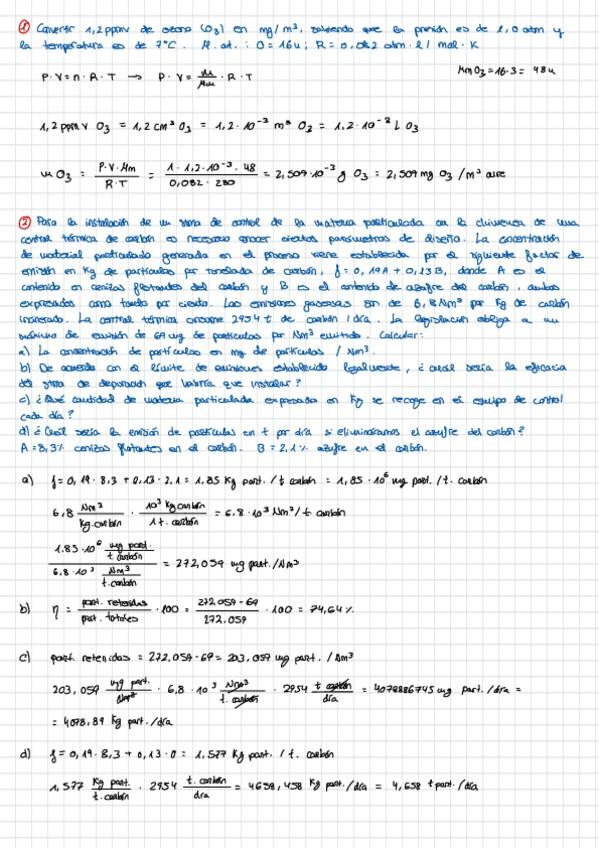 ① Convertir 1,2 ppmv de ozono (O₃) en mg/m³, sabiendo que la presión es de 1,0 atm y
la temperatura es de 7°C. M. at.: O = 16u; R = 0,082 atm·l/mol·K
P·V = n·R·T → P·V = m/Mm · R·T    Mm O₃ = 16·3 = 48u
1,2 ppmv O₃ = 1,2 cm³ O₃ = 1,2·10⁻³ m³ O₃ = 1,2·10⁻³ L O₃
m O₃ = P·V·Mm / R·T = 1·1,2·10⁻³·48 / 0,082·280 = 2,509·10⁻³ g O₃ = 2,509 mg O₃/m³ aire
② Para la instalación de un stma de control de la materia particulada en la chimenea de una
central térmica de carbón es necesario conocer ciertos parámetros de diseño. La concentración
de material particulado generada en el proceso viene establecida por el siguiente factor de
emisión en Kg de partículas por tonelada de carbón, f = 0,19A + 0,13B, donde A es el
contenido en cenizas flotantes del carbón y B es el contenido de azufre del carbón, ambos
expresados como tanto por ciento. Las emisiones gaseosas son de 6,8 Nm³ por Kg de carbón
incinerado. La central térmica consume 2954 t de carbón/día. La legislación obliga a un
máximo de emisión de 69 mg de partículas por Nm³ emitido. Calcular:
a) La concentración de partículas en mg de partículas / Nm³.
b) De acuerdo con el límite de emisiones establecido legalmente, ¿cuál sería la eficacia
del stma de depuración que habría que instalar?
c) ¿Qué cantidad de materia particulada expresada en Kg se recoge en el equipo de control
cada día?
d) ¿Cuál sería la emisión de partículas en t por día si elimináramos el azufre del carbón?
A = 8,3% cenizas flotantes en el carbón. B = 2,1% azufre en el carbón.
a) f = 0,19·8,3 + 0,13·2,1 = 1,85 Kg part./t carbón = 1,85·10⁶ mg part./t. carbón
6,8 Nm³/Kg.carbón · 10³ Kg carbón/1 t. carbón = 6,8·10³ Nm³/t carbón
1.85·10⁶ mg part./t.carbón / 6.8·10³ Nm³/t.carbón = 272,059 mg part./Nm³
b) η = part. retenidas/part. totales · 100 = 272,059 - 69/272,059 · 100 = 74,64%
c) part. retenidas = 272,059 - 69 = 203,059 mg part./Nm³
203,059 mg part./Nm³ · 6,8·10³ Nm³/t.carbón · 2954 t carbón/día = 4078886745 mg part./día =
= 4078,89 Kg part./día
d) f = 0,19·8,3 + 0,13·0 = 1,577 Kg part./t. carbón
1,577 Kg part./t.carbón · 2954 t.carbón/día = 4658,458 Kg part./día = 4,658 t part/día